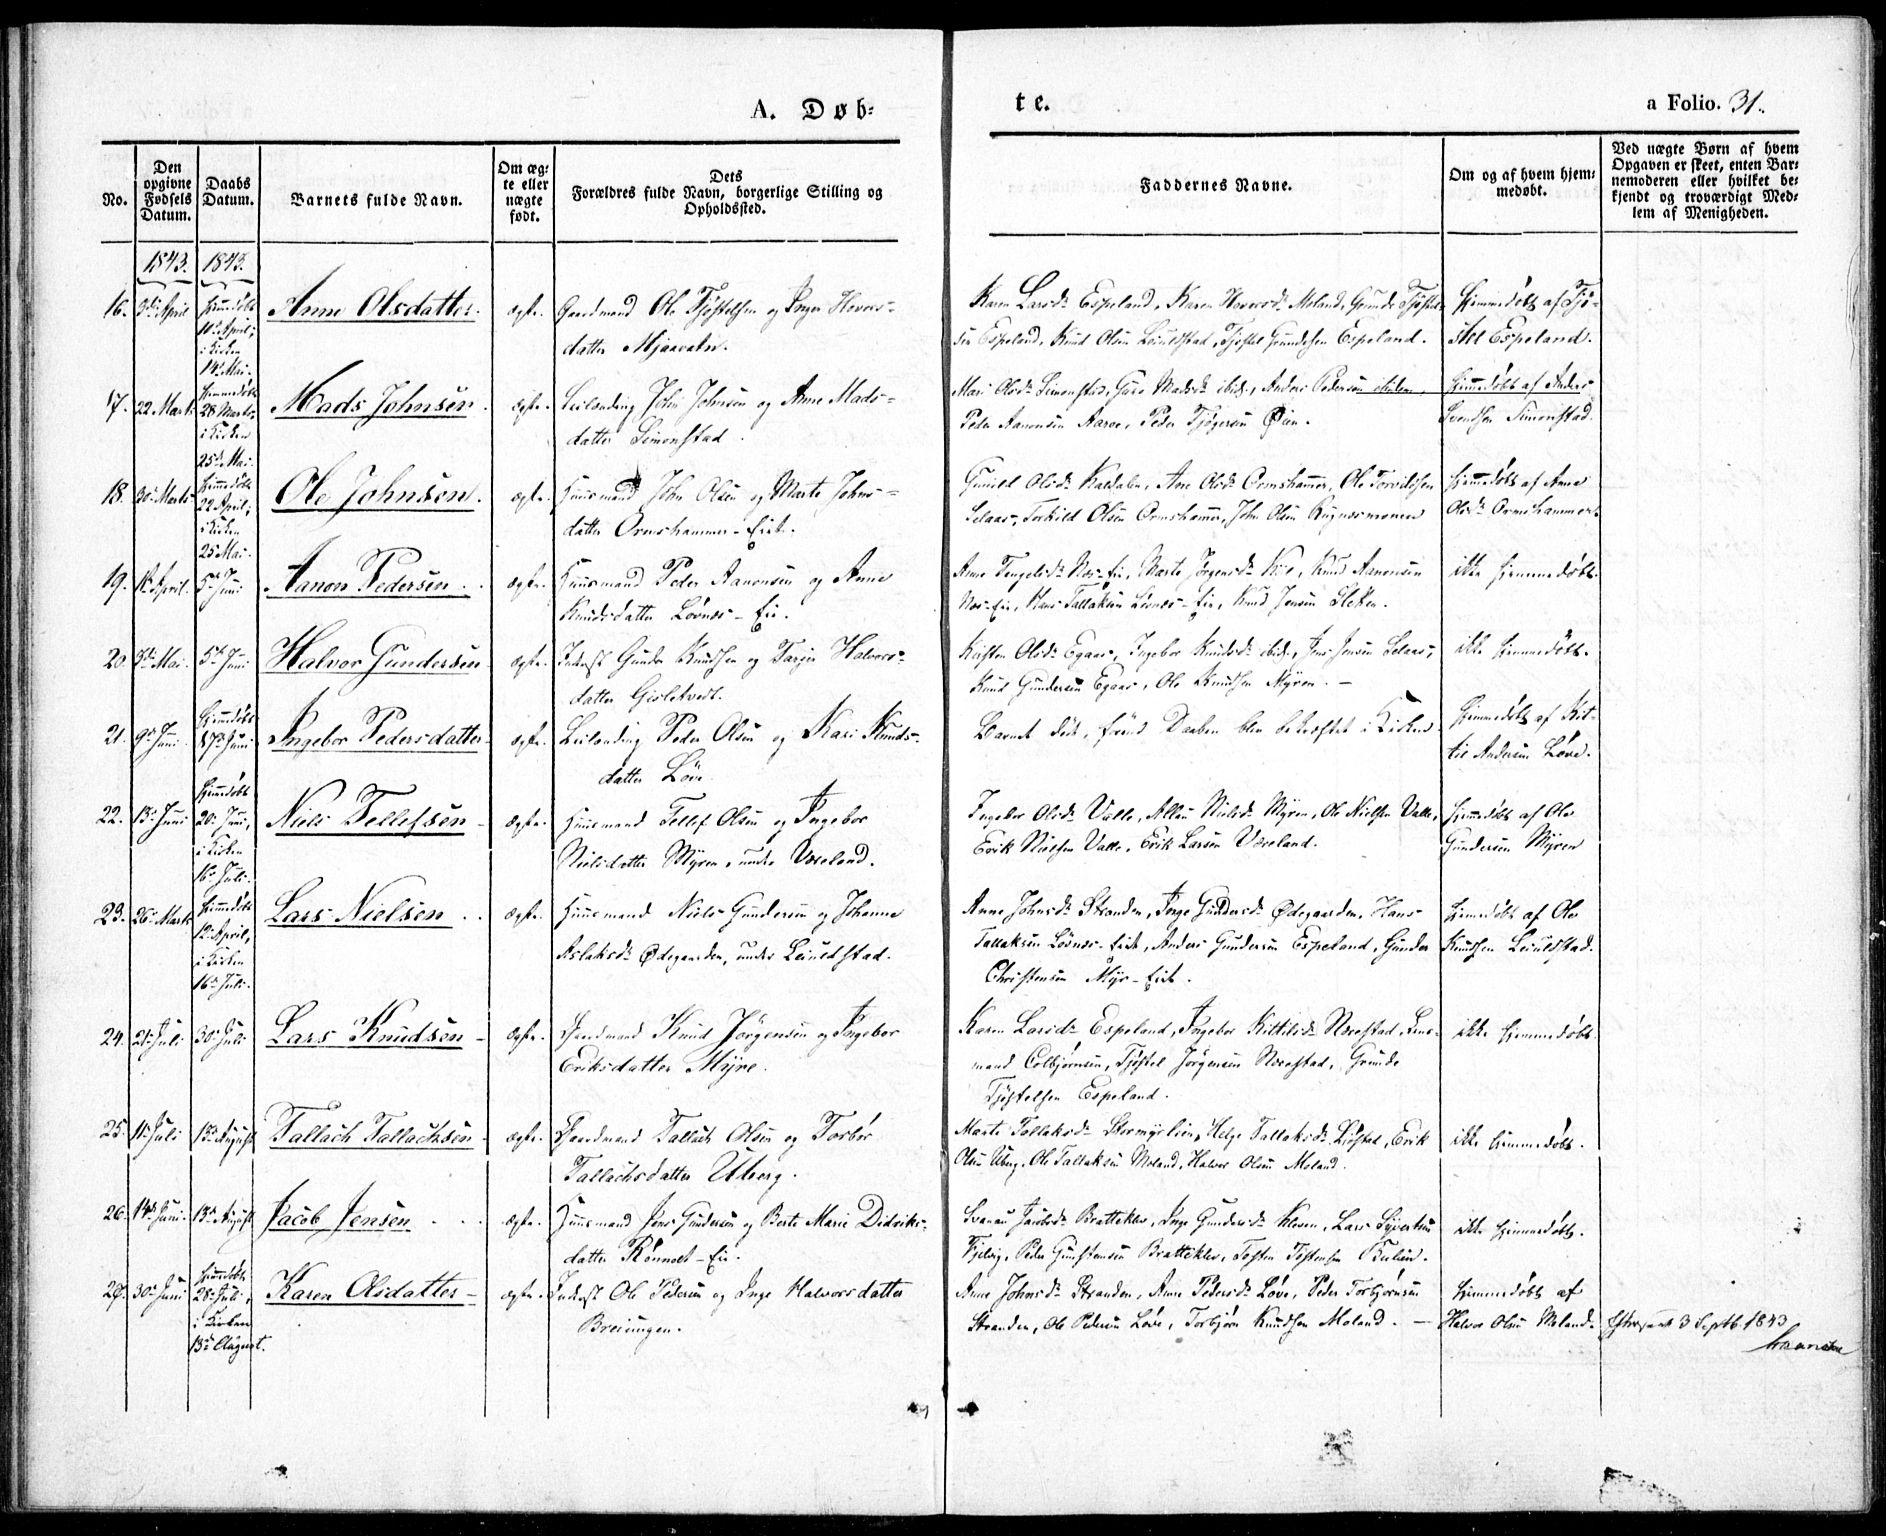 A. Døb=
te.
a Folio. 31.
No.
Den opgivne Fødsels Datum.
Daabs Datum.
Barnets fulde Navn.
Om æg= te eller uægte født.
Dets Forældres fulde Navn, borgerlige Stilling og Opholdssted.
Faddernes Navne.
Om og af hvem hjem= medøbt.
Ved uægte Børn af hvem Opgaven er skeet, enten Bar= nemoderen eller hvilket be= kjendt og troværdigt Med= lem af Menigheden.
1843. 1843.
16. 3die April Hjemmedøbt 10de April, i Kirken 14de Mai. Anne Olsdatter. ægte. Gaardmand Ole Tjøstelsen og Inger Hovors=
datter Mjaavatn.
Karen Larsdr Espeland, Karen Hovorsdr Moland, Grunde Tjøstel=
sen Espeland, Knud Olsen Leiuldstad, Tjøstel Grundesen Espeland.
Hjemmedøbt af Tjø=
stel Espeland.
17. 22. Marts Hjemmedøbt 28 Marts, i Kirken 25de Mai. Mads Johnsen. ægte. Leilænding John Johnsen og Anne Mads=
datter Simonstad.
Mari Olsdr Simonstad, Guro Madsdr ibid., Anders Pedersen ibidem,
Peder Aanonsen Aaree, Peder Tjøgersen Øien.
Hjemmedøbt af Anders
Svendsen Simonstad.
18. 30. Marts Hjemmedøbt 22 April, i Kirken 25 Mai. Ole Johnsen. ægte. Huusmand John Olsen og Marte Johns=
datter Ormshammer-Eiet.
Gunild Olsdr Kaldalen, Ane Olsdr Ormshammer, Ole Torvildsen
Selaas, Torkild Olsen Ormshammer, John Olsen Rugnæsmonen
Hjemmedøbt af Anne
Olsdr Ormshammer.
19. April. 5te Juni Aanon Pedersen. ægte. Huusmand Peder Aanonsen og Anne
Knudsdatter Løvnes-Eie.
Anne Tengelsdr Næs-Eie, Marte Jørgensdr Kile, Knud Aanonsen
Næs-Eie, Hans Tallaksen Løvnæs-Eie, Knud Jensen Sletten.
ikke hjemmedøbt.
20. 3die Mai. 5te Juni Halvor Gundersen ægte. Inderst Gunder Knudsen og Tarjer Halvors=
datter Gisletvedt.
Kirsten Olsdr Egaas, Ingebor Knudsdr ibid., Jens Jensen Selaas,
Knud Gundersen Egaas, Ole Knudsen Myren. —
ikke hjemmedøbt.
21. 9de Juni. Hjemmedøbt 17de Juni Ingebor Pedersdatter ægte. Leilænding Peder Olsen og Kari Knuds=
datter Løve.
Barnet døde, førend Daaben blev bekræftet i Kirken
Hjemmedøbt af Kit=
til Andersen Løve.
22. 13. Juni Hjemmedøbt 20. Juni, i Kirken 16de Juli. Niels Tellefsen ægte. Huusmand Tellef Olsen og Ingebor
Nielsdatter Myren, under Væreland.
Ingebor Olsdr Valle, Nielsdr Myren, Ole Nielsen Valle,
Erik Nielsen Valle, Erik Larsen Væreland.
Hjemmedøbt af Ole
Gundersen Myren
23. 26. Marts Hjemmedøbt 12. April, i Kirken 16de Juli. Lars Nielsen ægte. Huusmand Niels Gundersen og Johanne
Aslaksdr Ødegaarden, under Leiuldstad.
Anne Johnsdr Stranden, Inge Gundersdr Ødegaarden, Hans
Tallaksen Løvnes-Eiet, Anders Gundersen Espeland, Gunder
Christensen Myr-Eiet.
Hjemmedøbt af Ole
Knudsen Leiuldstad.
24. 21. Juli 30. Juli Lars Knudsen ægte. Gaardmand Knud Jørgensen og Ingebor
Eriksdatter Myre.
Karen Larsdr Espeland, Ingebor Kittilsdr Næestad, Lens=
mand Colbjørnsen, Tjøstel Jørgensen Næestad, Grunde
Tjøstelsen Espeland.
ikke hjemmedøbt.
25. 11. Juli 13de August Tallach Tallachsen ægte. Gaardmand Tallach Olsen og Torbør
Tallachsdatter Uberg.
Marte Tallaksdr Stormyrlien, Helge Tallaksdr Liestad, Erik
Olsen Uberg, Ole Tallaksen Moland, Halvor Olsen Moland.
ikke hjemmedøbt.
26. 14de Juni. 13de August Jacob Jensen ægte. Huusmand Jens Gundersen og Berte Marie Didriks=
datter Rønnes-Eie.
Jacobsdr Bratteklev, Inge Gundersdr Klesen, Lars Syvertsen
Peder Gunstensen Bratteklev, Tosten Tostensen
ikke hjemmedøbt.
27. 30. Juni Hjemmedøbt 28. Juli, i Kirken 13de August. Karen Olsdatter ægte. Inderst Ole Pedersen og Inge Halvorsdatter
Breiungen.
Anne Johnsdr Stranden, Anne Pedersdr Løve, Peder Torbjørnsen
Stranden, Ole Pedersen Løve, Torbjørn Knudsen Moland. —
Hjemmedøbt af
Halvor Olsen Moland.
3 Septb. 1843